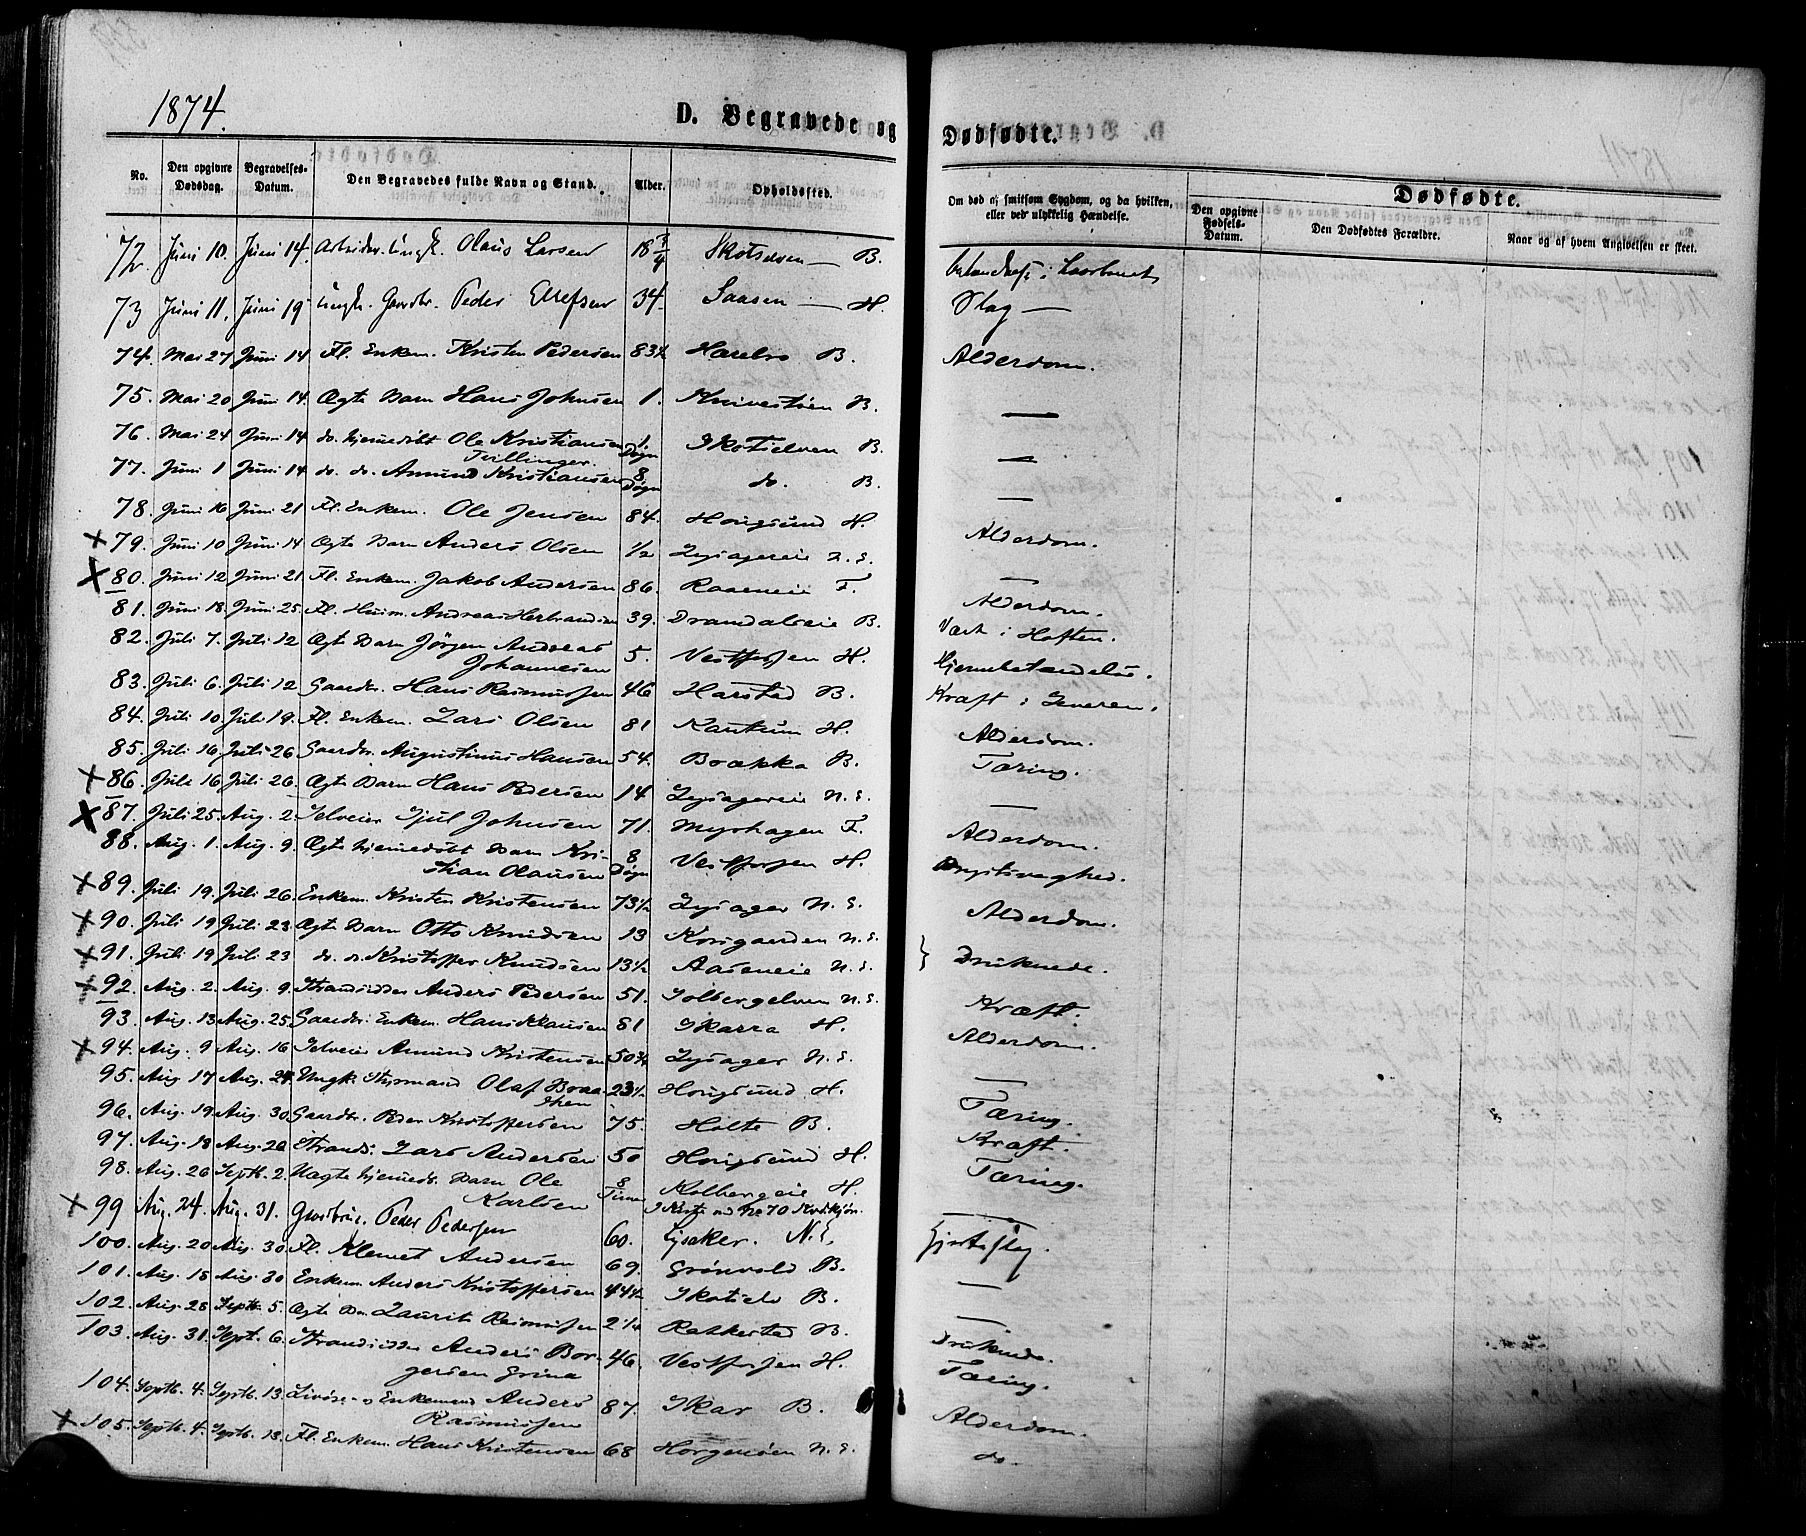 1874.
D. Begravede og Dødfødte.
No. Den opgivne Dødsdag. Begravelses-Datum. Den Begravedes fulde Navn og Stand. Alder. Opholdssted. Om død af smitsom Sygdom, og da hvilken, eller ved ulykkelig Hændelse. Den opgivne Fødsels-Datum. Den Dødfødtes Forældre. Naar og af hvem Angivelsen er skeet.
Dødfødte.
72. Juni 10. Juni 14. Arbeider Ungk. Olaus Larsen 18 3/4 B.
73 Juni 11. Juni 19 Ungk. Gaardbr. Peder Ellefsen 34. Saasen — H. Slag —
74. Mai 27 Juni 14 Fl. Enkem. Kristen Pedersen 83 1/2 Harebro B. Alderdom.
75. Mai 20 Juni 14. Ægte Barn Hans Johnsen 1. Knivestøen B. —
76. Mai 24 Juni 14 do. hjemedøbt Ole Kristiansen 1. Døgn Skotselven B. —
Tvillinger.
77. Juni 1 Juni 14 do. do. Amund Kristiansen 8. Døgn do. B. —
78. Juni 16 Juni 21 Fl. Enkem. Ole Jensen 84. Hougsund H. Alderdom.
× 79. Juni 10 Juni 14 Ægte Barn Anders Olsen 1/2 Lysagereie N. E. —
× 80. Juni 12 Juni 21. Fl. Enkem. Jakob Andersen 86. Raaeneie F. Alderdom.
81. Juni 18. Juni 25. Fl. Huusm. Andreas Herbrandsen 39. Dramdaleie B. Værk i Hoften.
82. Juli 7. Juli 12 Ægte Barn Jörgen Andreas 5. Vestfossen H. Hjernebetændelse.
Johannesen
83. Juli 6. Juli 12 Gaardbr. Hans Rasmussen 46 Harstad B. Kræft i Leveren.
84. Juli 10 Juli 19. Fl. Enkem. Lars Olsen 81 Kantum H. Alderdom.
85. Juli 16. Juli 26 Gaardbr. Augustinus Hansen 54. Boakka B. Tæring.
× 86. Juli 16 Juli 26. Ægte Barn Hans Pedersen 14 Lysagereie N. E. —
× 87. Juli 25. Aug. 2 Selveier Gjul Johnsen 71. Myrhagen F. Alderdom.
88. Aug. 1. Aug. 9. Ægte hjemedøbt Barn Kri- 8 Døgn Vestfossen H. Brystsvaghed.
stian Olausen
× 89. Juli 19. Juli 26. Enkem. Kristen Kristensen 73 1/2 Lysager N. E. Alderdom.
× 90. Juli 19 Juli 23 Ægte Barn Otto Knudsen 13 Korsgaarden N. E. } Druknede.
× 91. Juli 19 Juli 23 do. do. Kristoffer Knudsen 13 1/2 Aaseneie N. E.
× 92. Aug. 2. Aug. 9. Strandsidder Anders Pedersen 51. Solbergelven N. E. Kræft.
93. Aug. 13 Aug. 25 Gaardbr. Enkem. Hans Klausen 81 Skarra H. Alderdom.
× 94. Aug. 9 Aug. 16 Selveier Amund Kristensen 50 3/4 Lysager N. E. —
95. Aug. 17 Aug. 24 Ungk. Styrmand Olaf Braa- 23 1/2 Hougsund H. Tæring.
then
96. Aug. 19. Aug. 30 Gaardbr. Peder Kristoffersen 75. Holte B. Kræft.
97. Aug. 18 Aug. 26 Strands. Lars Andersen 50 Hougsund H. Tæring.
98. Aug. 26 Septb. 2. Uægte hjemedøbt Barn Ole 8 Timer Kolbergeie H. —
Karlsen
× 99 Aug. 24. Aug. 31. Peder Pedersen 60. Lysaker. N. E. Hjerteslag.
100. Aug. 20 Aug. 30 Fl. Klemet Andersen 69. Grönvold B. —
101. Aug. 18 Aug. 30 Enkem. Anders Kristoffersen 44 1/2 B. —
102. Aug. 28 Septb. 5. Ægte Barn Laurits Rasmussen 2 1/4 Rakkestad B. Druknede.
103. Aug. 31. Septb. 6. Strandsidder Anders Bor- 46. Vestfossen H. Tæring.
gersen Grina
104. Septb. 4. Septb. 13. Enkemand Anders 87. Skar B. Alderdom.
Rasmussen
× 105. Septb. 4. Septb. 13. Fl. Enkem. Hans Kristensen 68 Horgenøen N. E. do.